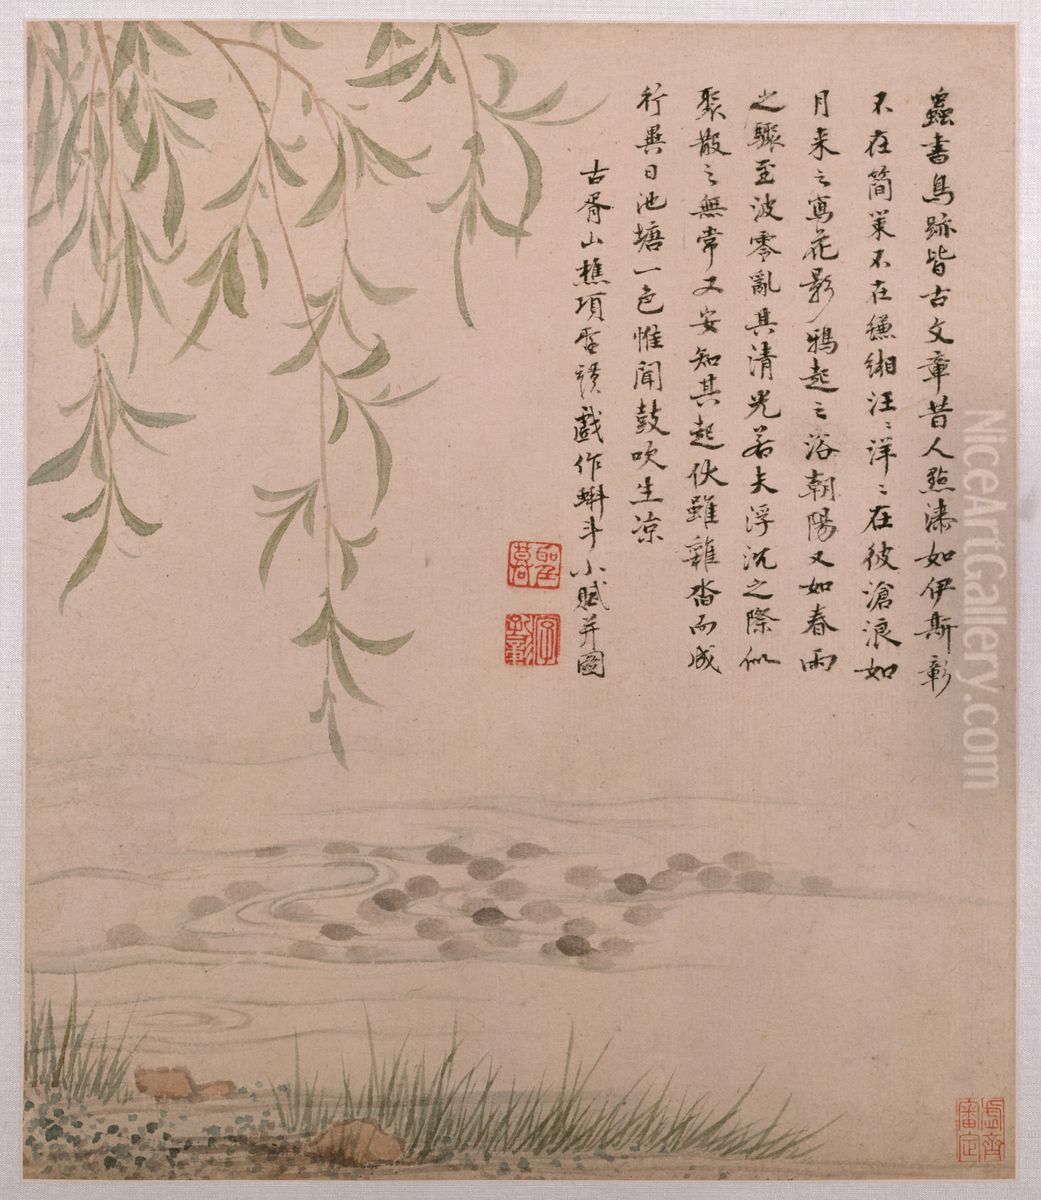 蟲書鳥跡皆古文章昔人點漆如伊斯彰
不在簡策不在縑緗汪〻洋〻在彼滄浪如
月来之寫花影鴉起之浴朝陽又如春雨
之驟至波零亂其清光若夫浮沉之際似
聚散之無常又安知其起伏雖雜沓而成
行異日池塘一色惟聞鼓吹生涼
古胥山樵項聖謨戲作蝌斗小賦并圖
聖謨
字孔彰
虛齋審定
NiceArtGallery.com